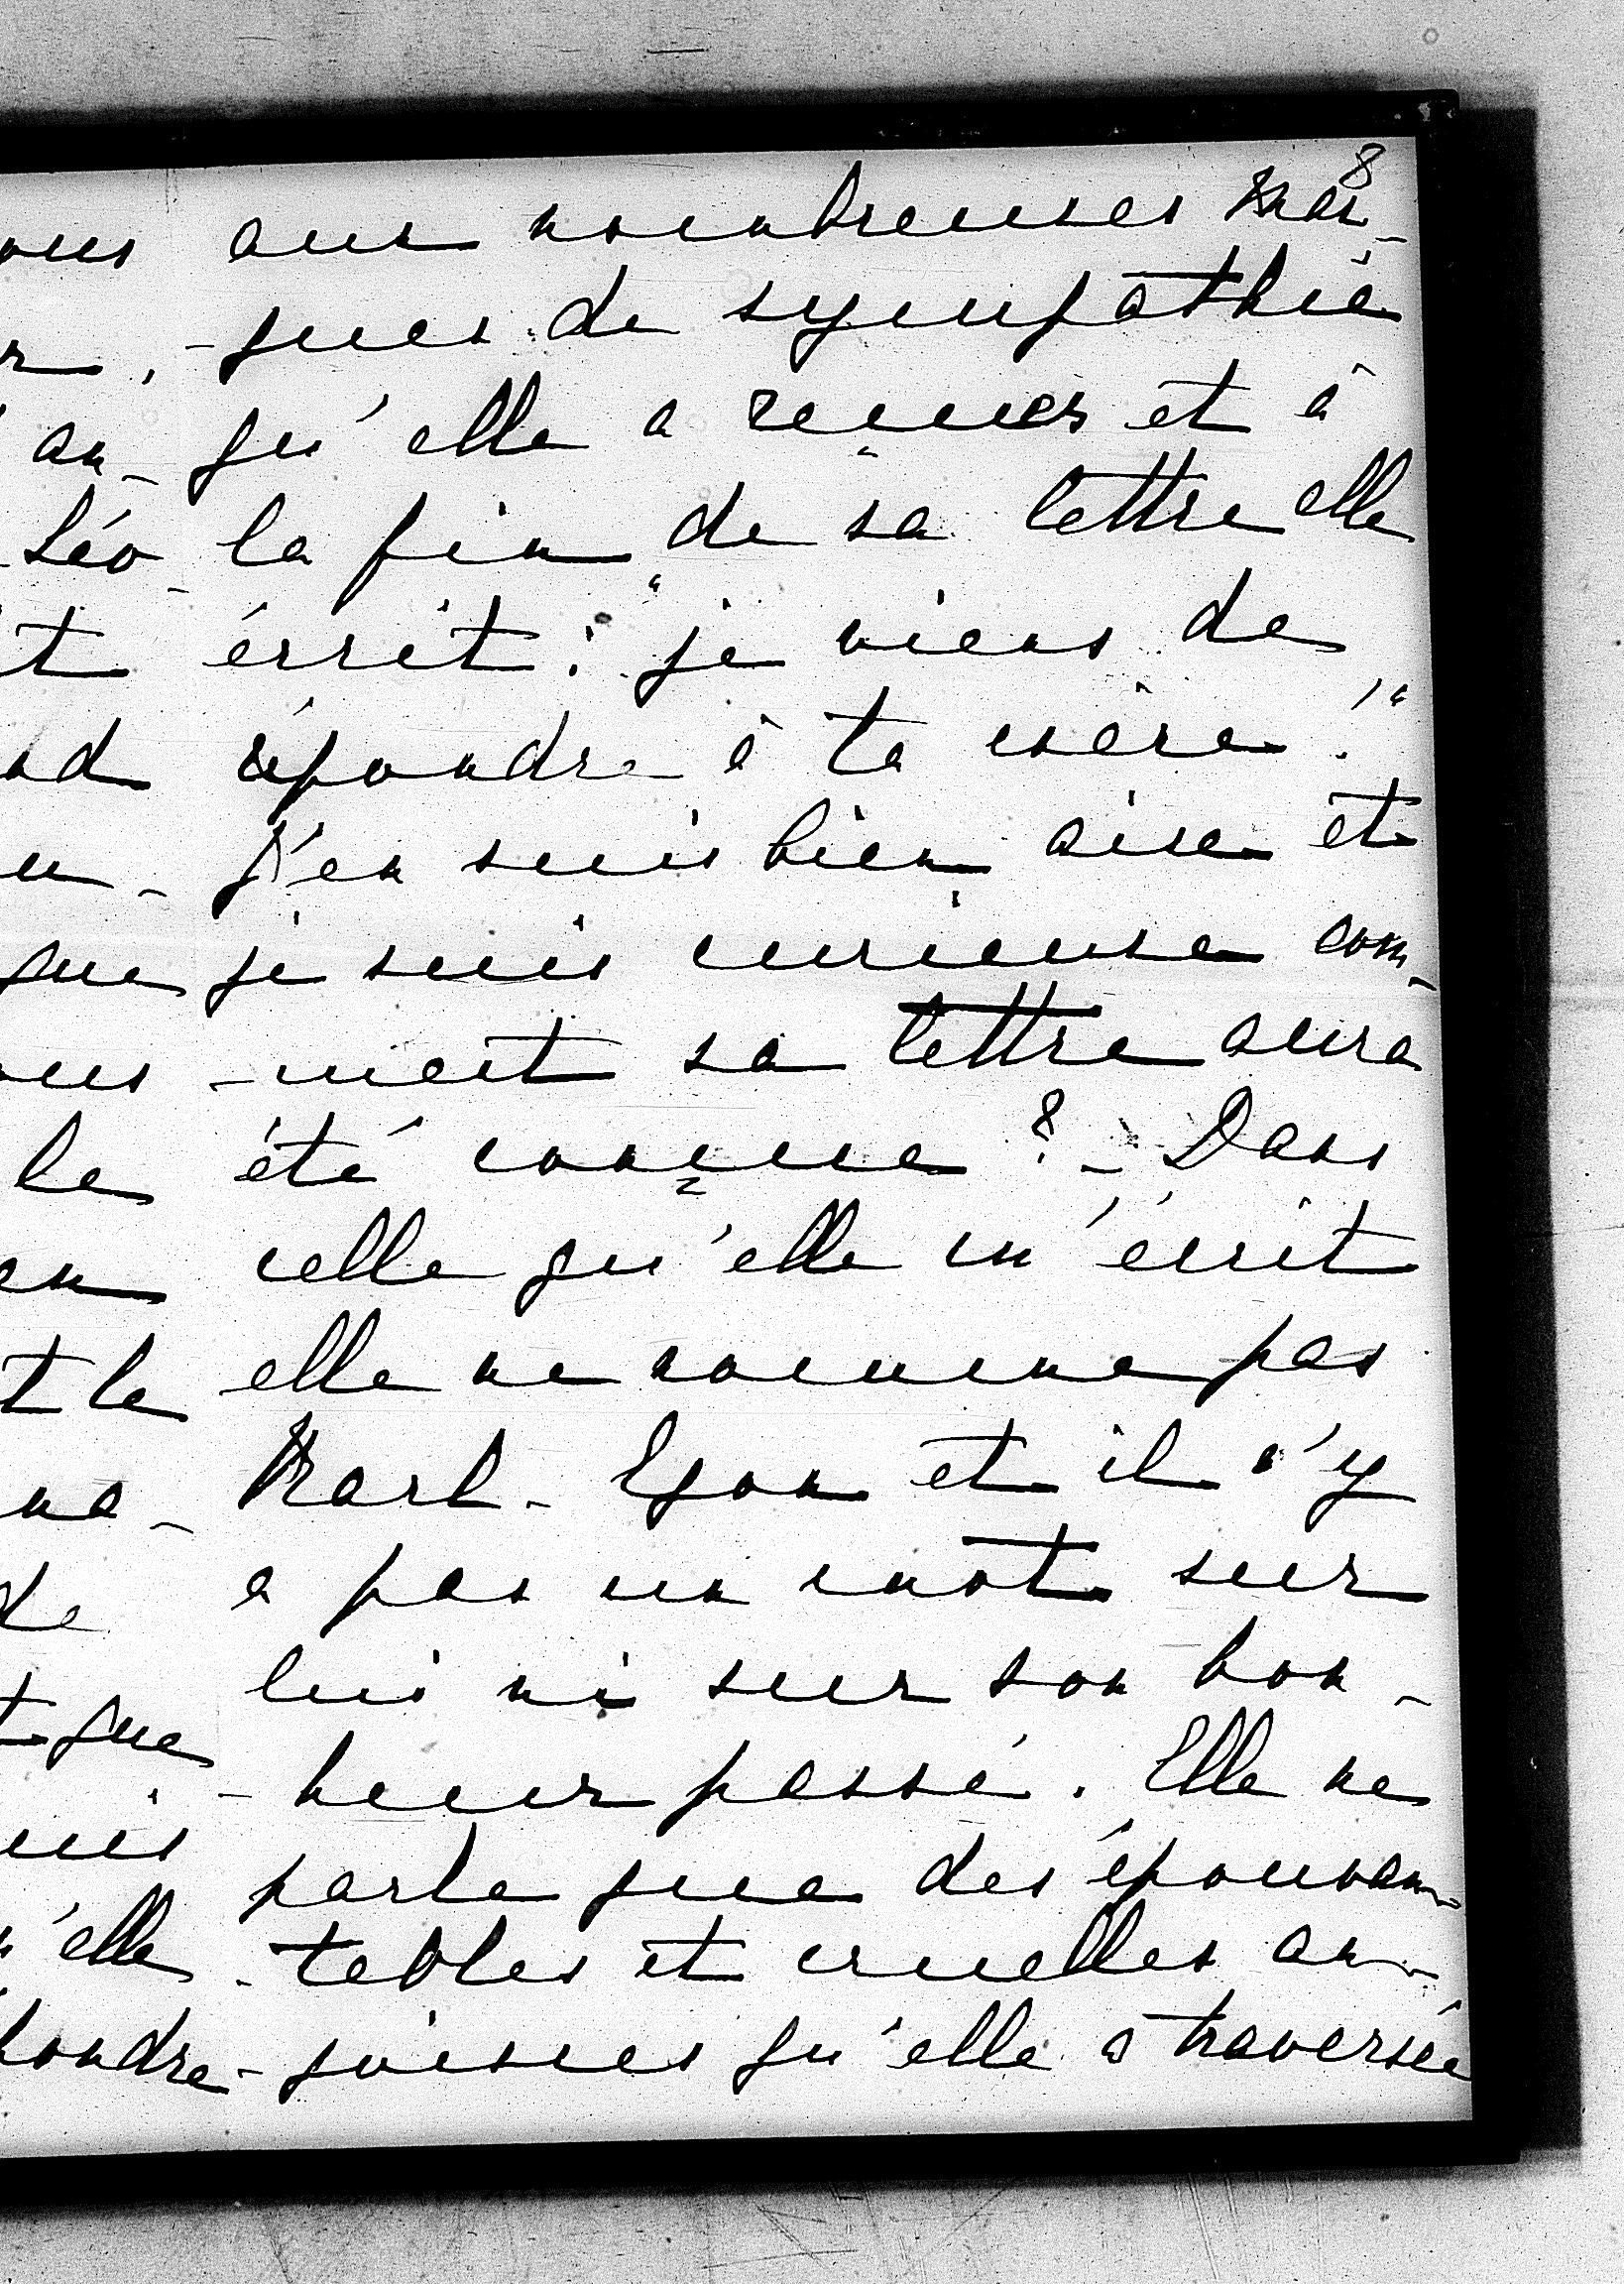 8
aux nombreuses mar-
-ques de sympathie
qu'elle a reçues et à
la fin de sa lettre elle
écrit : "je viens de
répondre à ta mère."
J'en suis bien aise et
je suis curieuse com-
-ment sa lettre aura
été conçue ? - Dans
celle qu'elle m'écrit
elle ne nomme pas
Karl-Egon et il n'y
a pas un mot sur
lui ni sur son bon-
-heur passé. Elle ne
parle que des épouvan-
-tables et cruelles an-
-goisses qu'elle a traversée
ous
r,
an-
Léo-
t
nd
u-
que
ous
le
en
t la
na-
de
t que
ues
'elle
pondre-